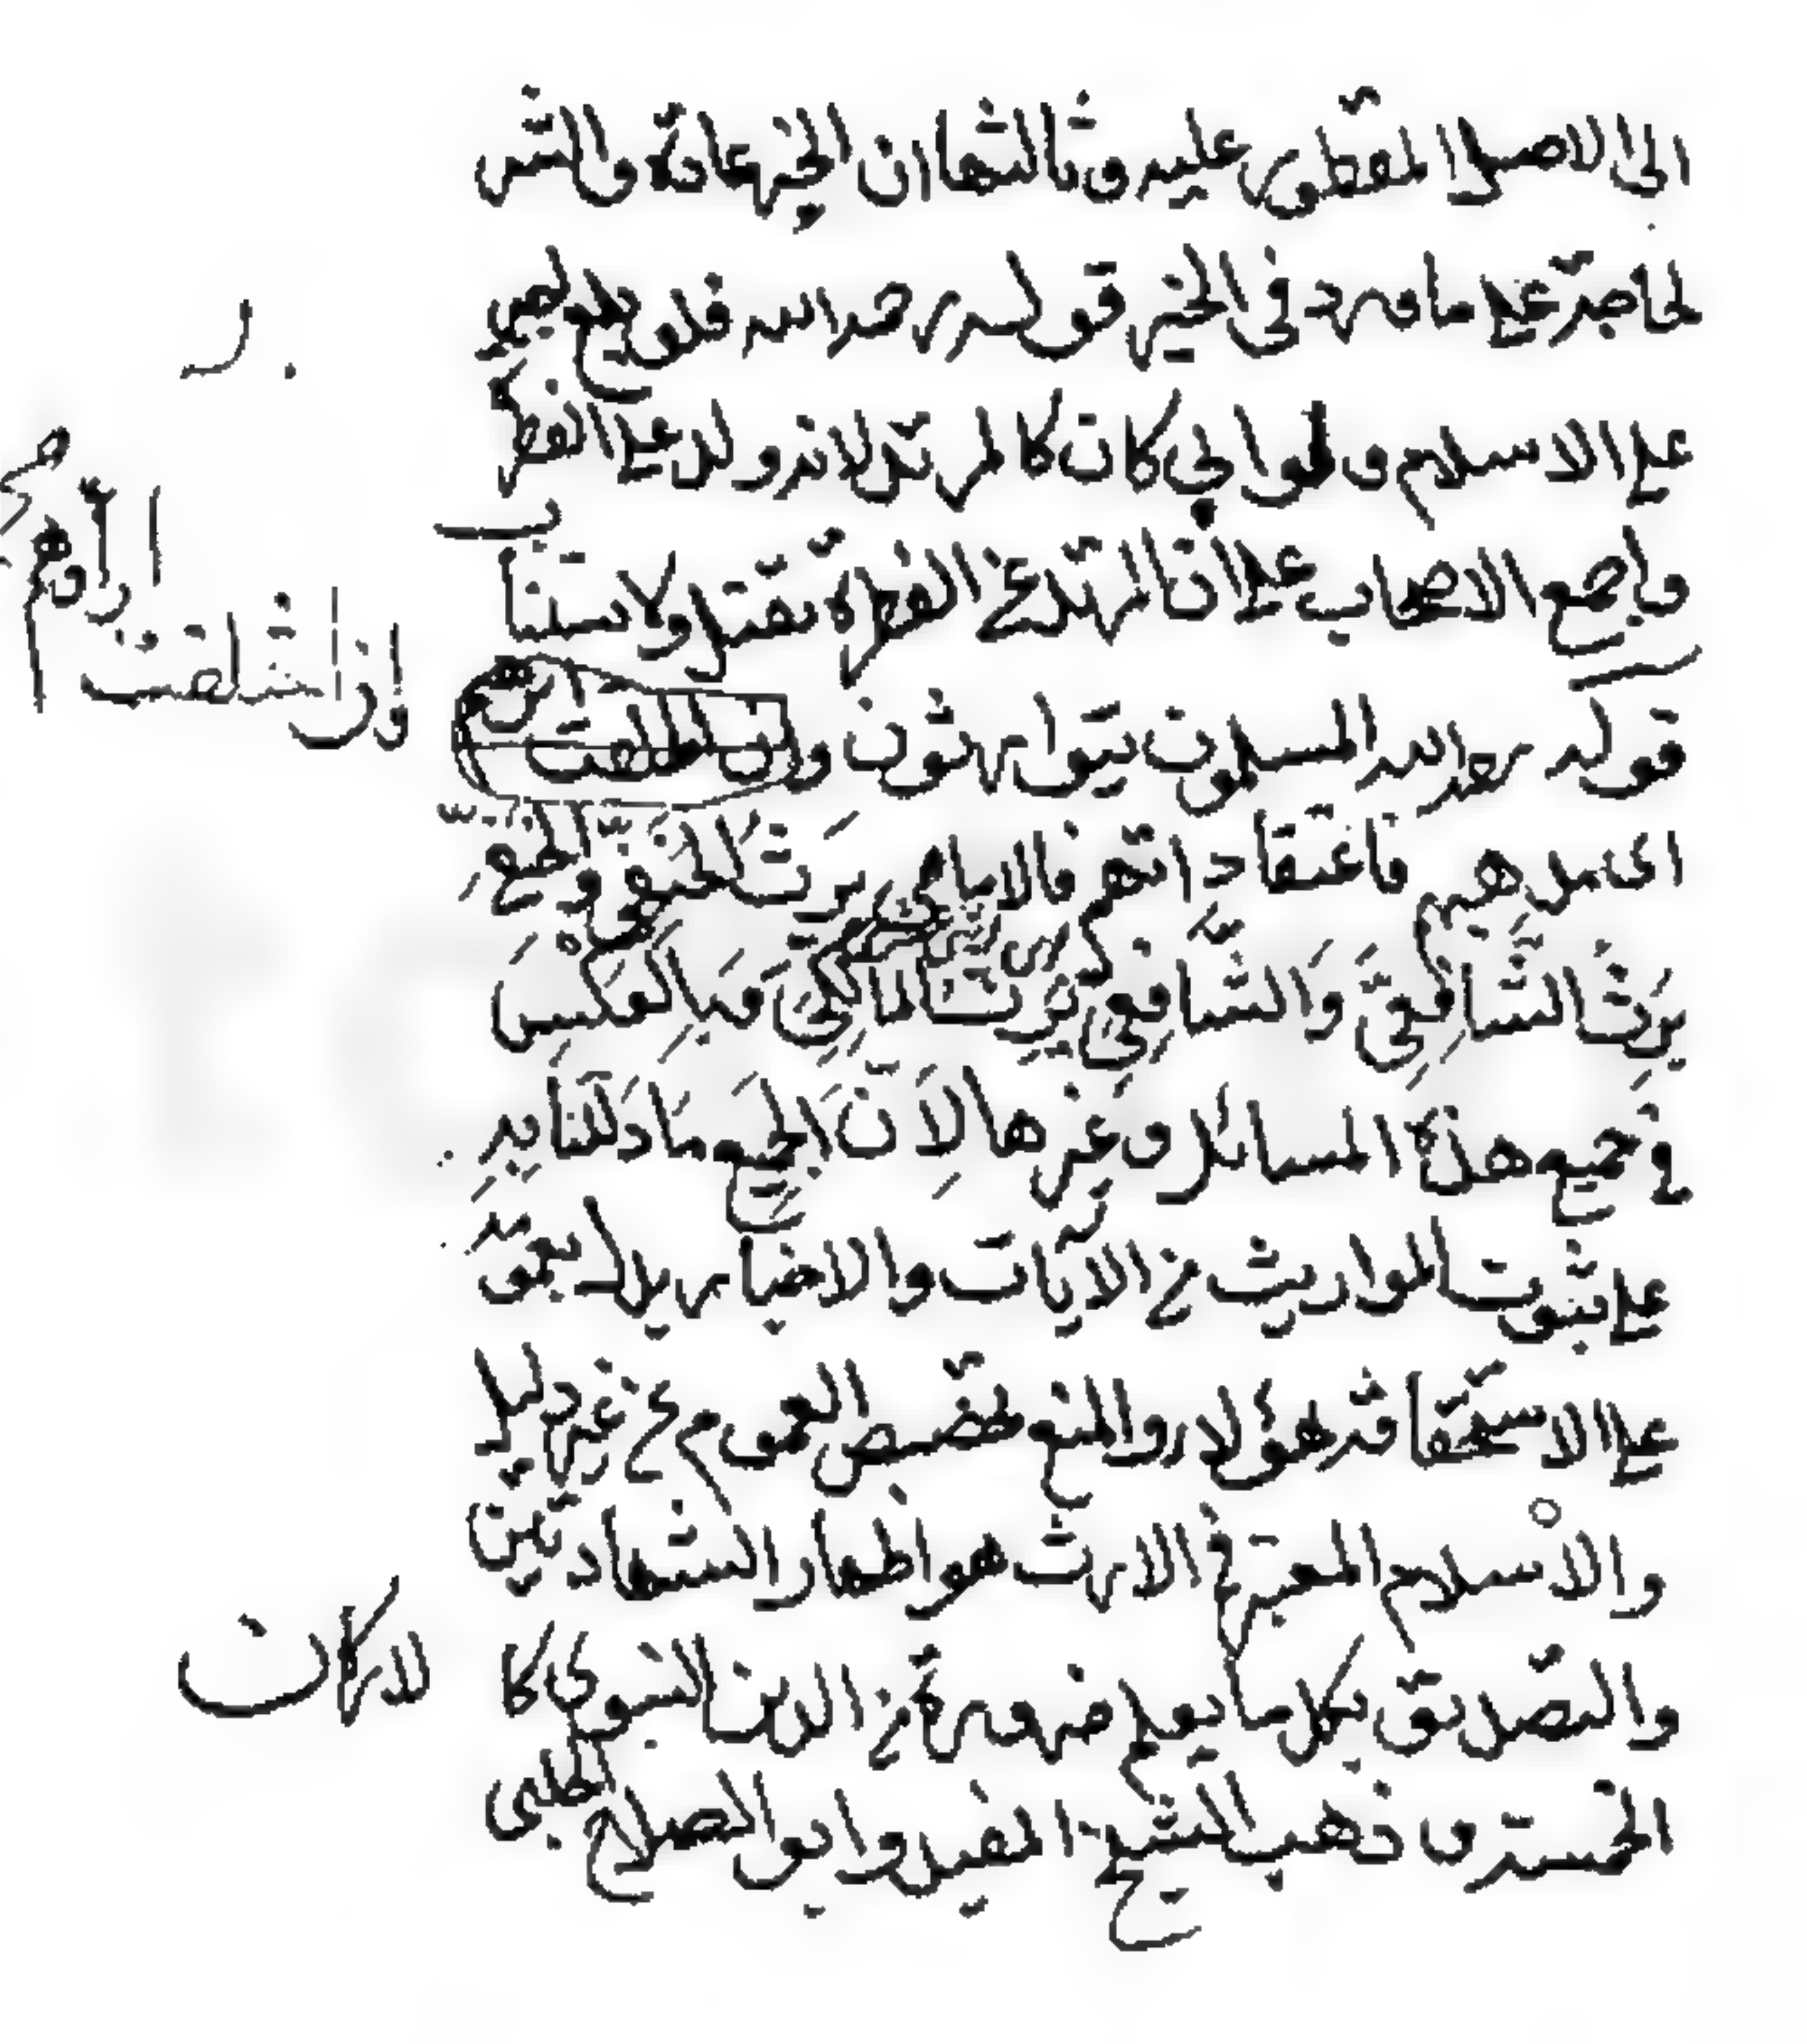 الى الاصل المفطور عليه وثالثها ان الخير عادة والشر
لجاجة على ما ورد فى الخبر قوله رحمه الله فلو بلغ
على الاسلام ولو ابى كان كالمرتد لانه ولد على الفطرة
واجمع الاصحاب على ان المرتد عن الفطرة يقتل ولا يستتاب
قوله رحمه الله المسلمون يتوارثون وان اختلفت
اراؤهم
اى مذهبهم فاعتقاداتهم فالامامى يرث الحنفى والحنفى
يرث الشافعى والشافعى يرث المالكى وبالعكس
وجميع هذه المسائل وغيرها لان الجميع ما دلتنا به
على ثبوت المواريث من الايات والاخبار يدل بعمومه
على الاستحقاق هؤلاء والمنع تخصيص العموم من غير دليل
والاسلام المعتبر فى الارث هو اظهار الشهادتين
والتصديق بكل ما يعلم ضرورة من الدين النبوى كا
لاركان
الخمسة وذهب الشيخ المفيد وابو الصلاح الحلبى